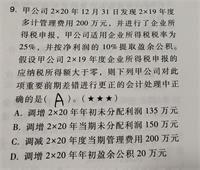 9. 甲公司 2×20 年 12 月 31 日发现 2×19 年度
多计管理费用 200 万元，并进行了企业所
得税申报，甲公司适用企业所得税税率为
25%，并按净利润的 10%提取盈余公积。
假设甲公司 2×19 年度企业所得税申报的
应纳税所得额大于零，则下列甲公司对此
项重要前期差错进行更正的会计处理中正
确的是( A )。(★★★)
A. 调增 2×20 年年初未分配利润 135 万元
B. 调增 2×20 年当期未分配利润 150 万元
C. 调减 2×20 年度当期管理费用 200 万元
D. 调增 2×20 年年初盈余公积 20 万元